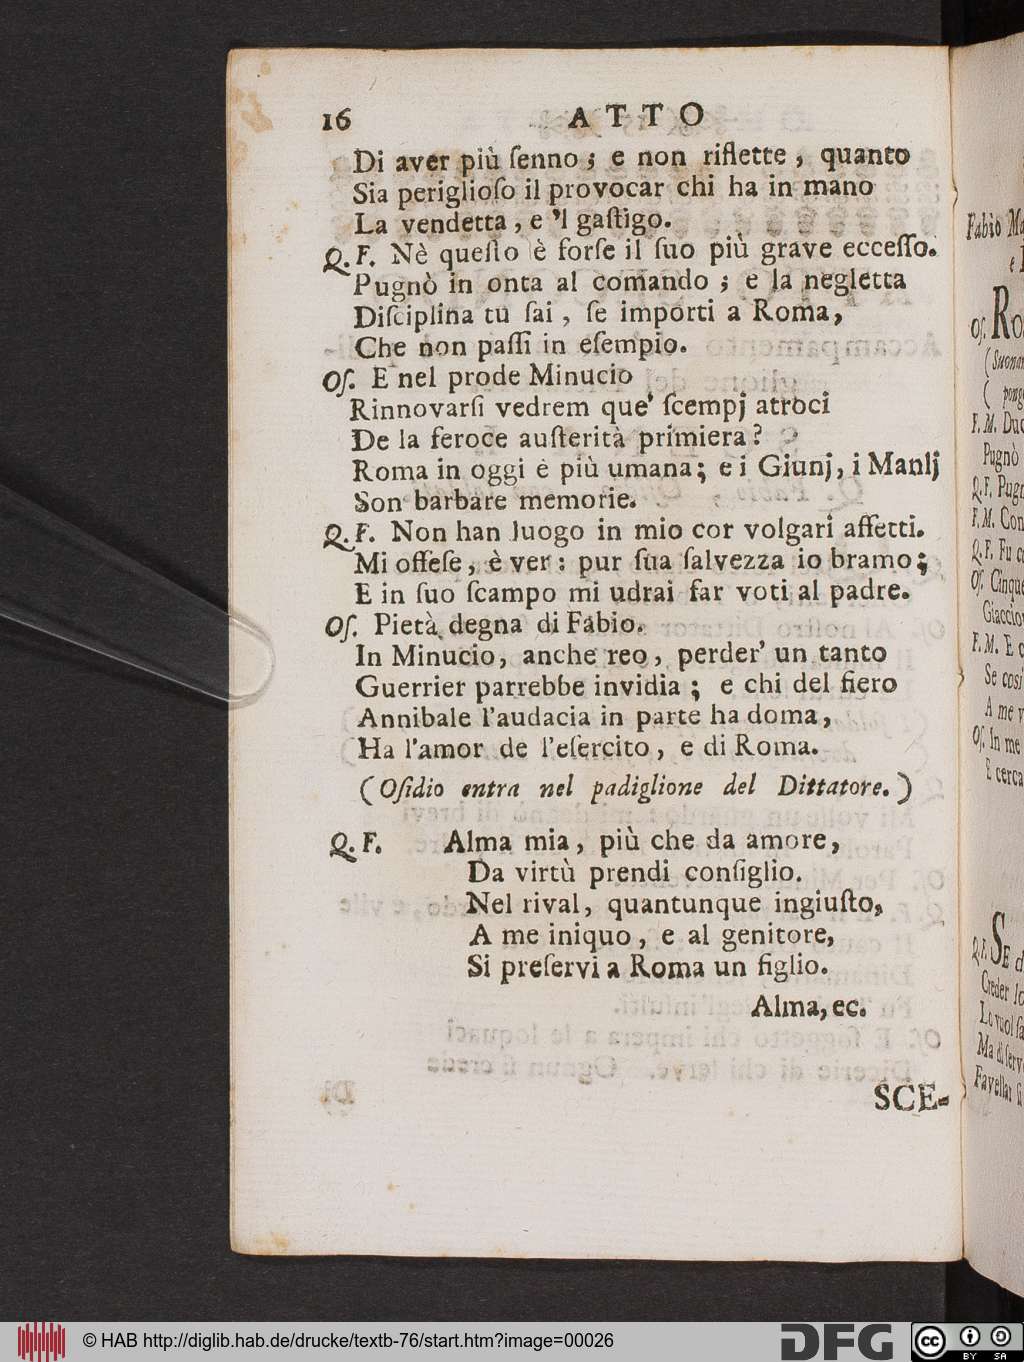 16 ATTO
Di aver più ſenno; e non riflette, quanto
Sia periglioſo il provocar chi ha in mano
La vendetta, e 'l gaſtigo.
Q. F. Nè queſto è forſe il ſuo più grave ecceſſo.
Pugnò in onta al comando; e la negletta
Diſciplina tu ſai, ſe importi a Roma,
Che non paſſi in eſempio.
Oſ. E nel prode Minucio
Rinnovarſi vedrem que' ſcempj atroci
De la feroce auſterità primiera?
Roma in oggi è più umana; e i Giunj, i Manlj
Son barbare memorie.
Q. F. Non han luogo in mio cor volgari affetti.
Mi offeſe, è ver: pur ſua ſalvezza io bramo;
E in ſuo ſcampo mi udrai far voti al padre.
Oſ. Pietà degna di Fabio.
In Minucio, anche reo, perder' un tanto
Guerrier parrebbe invidia; e chi del fiero
Annibale l'audacia in parte ha doma,
Ha l'amor de l'eſercito, e di Roma.
(Oſidio entra nel padiglione del Dittatore.)
Q. F. Alma mia, più che da amore,
Da virtù prendi conſiglio.
Nel rival, quantunque ingiuſto,
A me iniquo, e al genitore,
Si preſervi a Roma un figlio.
Alma, ec.
SCE-
Fabio
e
Oſ.
F. M.
Pugnò
Q. F.
F. M.
Q. F. Fu
Oſ. Cinque
F. M. E
Se così
A me
Oſ. In me
E cerca
Q. F. SE
Creder
Lo vuol
Ma di
© HAB http://diglib.hab.de/drucke/textb-76/start.htm?image=00026
DFG
cc BY SA